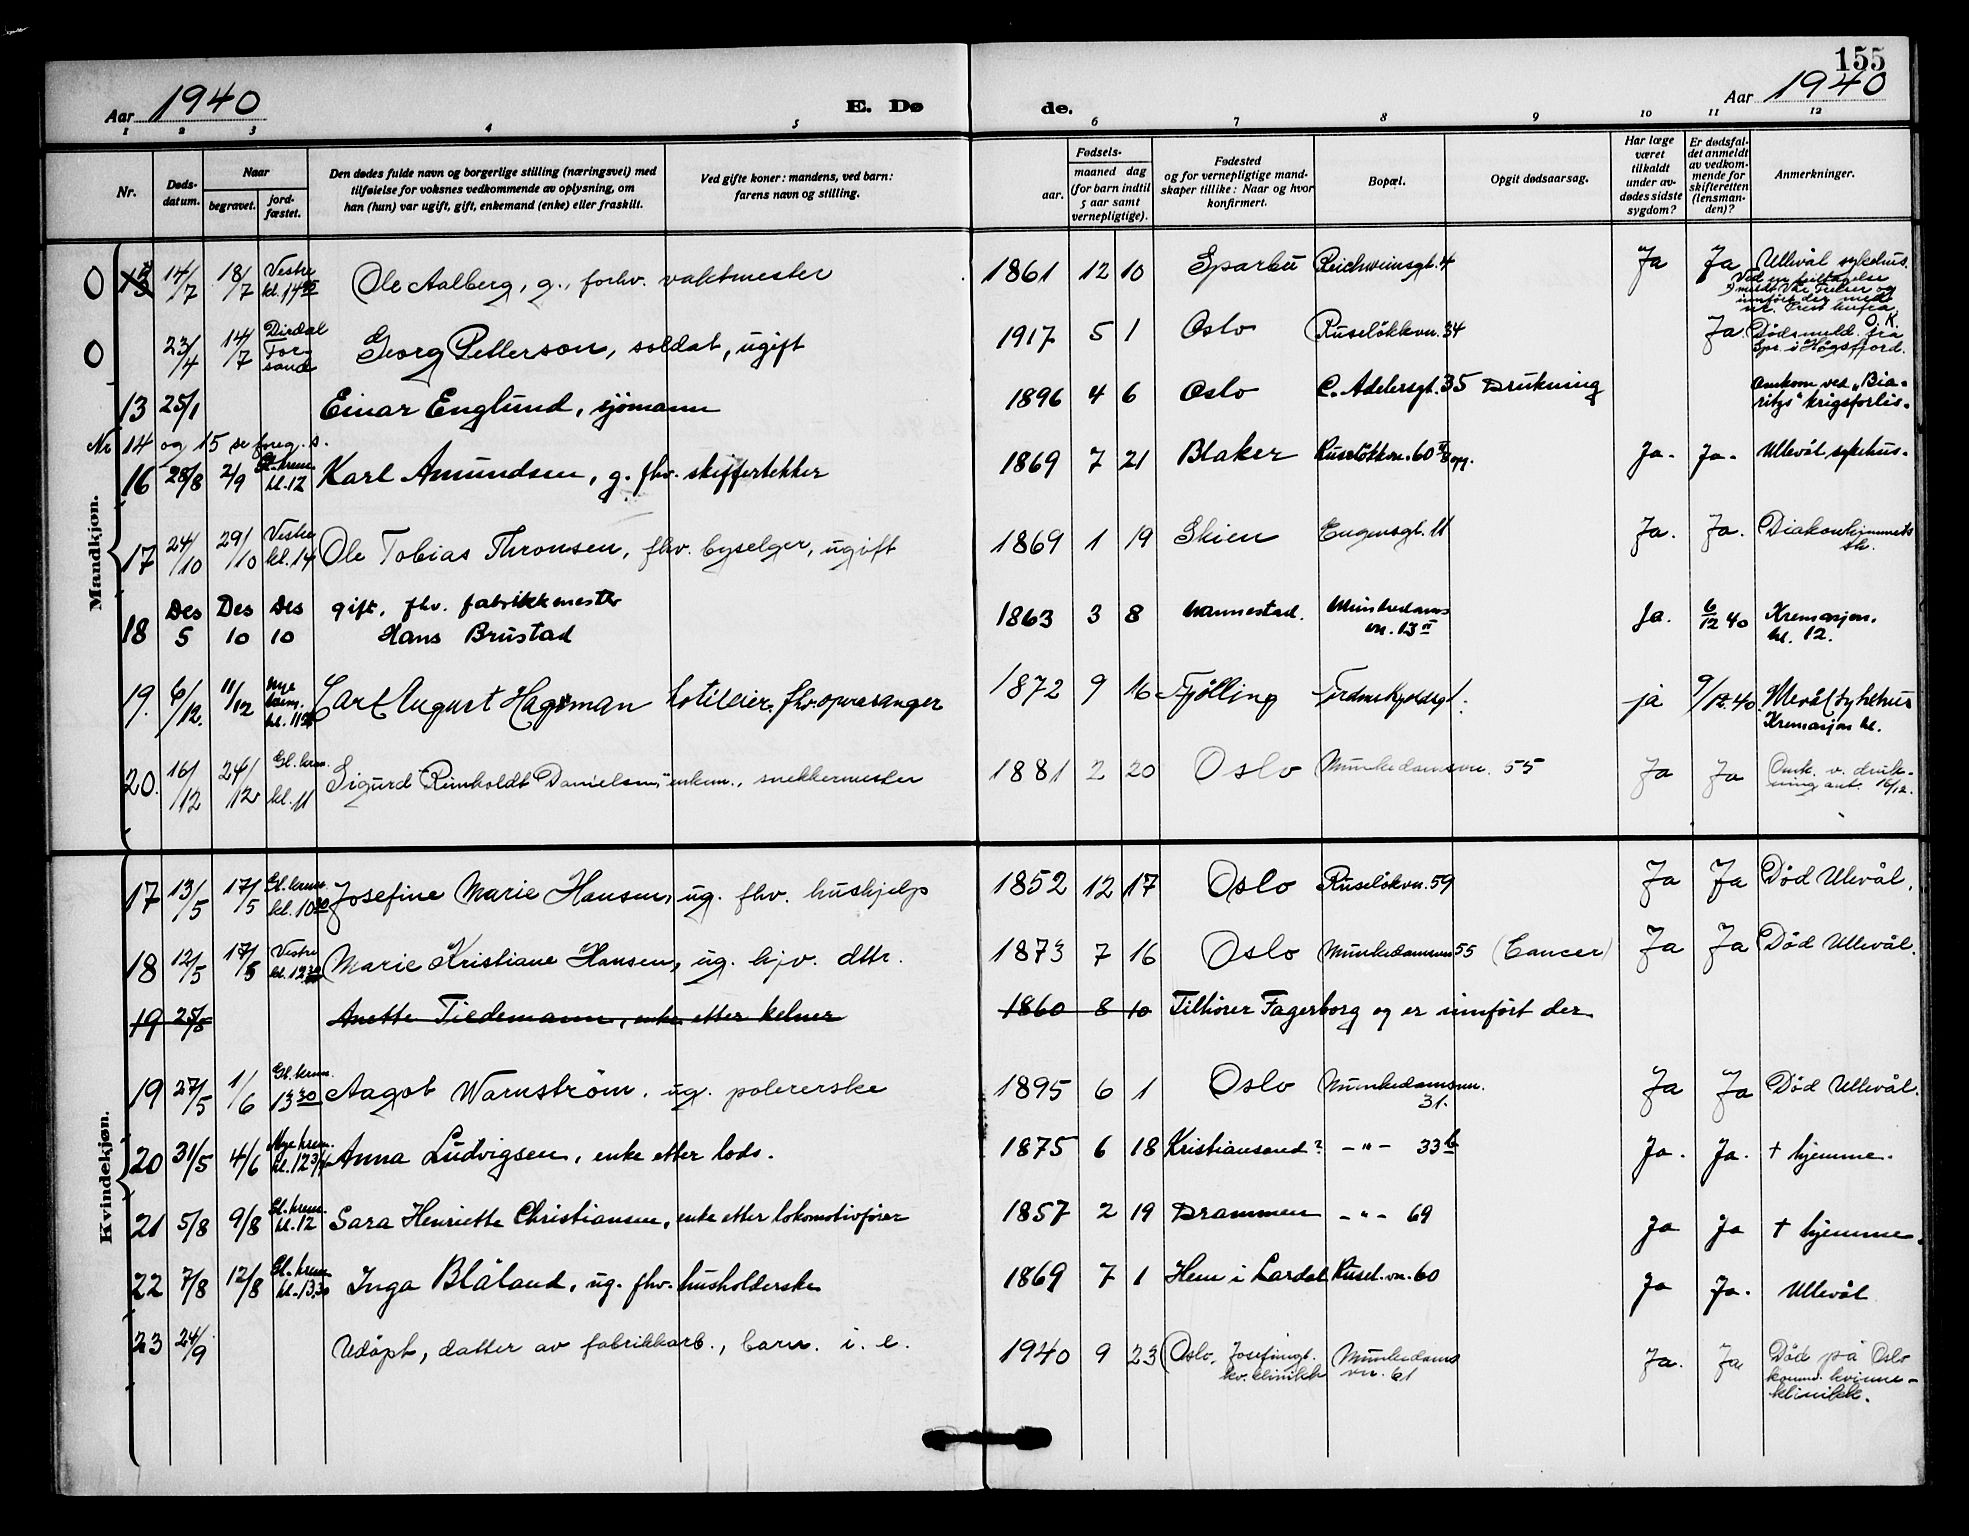 155
Aar 1940 E. Dø de. Aar 1940
1 2 3 4 5 6 7 8 9 10 11 12
Nr. Døds-datum. Naar begravet. jord-fæstet. Den dødes fulde navn og borgerlige stilling (næringsvei) med tilføielse for voksnes vedkommende av oplysning, om han (hun) var ugift, gift, enkemand (enke) eller fraskilt. Ved gifte koner: mandens, ved barn: farens navn og stilling. Fødsels- aar. maaned dag (for barn indtil 5 aar samt vernepligtige). Fødested og for vernepligtige mand-skaper tillike: Naar og hvor konfirmert. Bopæl. Opgit dødsaarsag. Har læge været tilkaldt under av-dødes sidste sygdom? Er dødsfal-det anmeldt av vedkom-mende for skifteretten (lensman-den)? Anmerkninger.
Mandkjøn.
O 13 14/7 18/7 Vestre kl. 14 Ole Aalberg, g., forhv. vaktmester 1861 12 10 Sparbu Reichweinsgt. 4 Ja Ja Ullevål sykehus. Ved en feiltagelse meldt Vår Frelser og innført der med nr.
O 23/4 14/7 Dirdal Forsand Georg Petterson, soldat, ugift 1917 5 1 Oslo Ruseløkkvn. 34 Ja. O.K. Dødsmeld. fra Spr. i Høgsfjord.
13 25/1 Einar Englund, sjømann 1896 4 6 Oslo C. Adelersgt. 35 Drukning Omkom ved "Biaritz" krigsforlis.
Nr 14 og 15 se foreg. s.
16 28/8 2/9 Gl. krem. kl. 12 Karl Amundsen, g. fhv. skiffertekker 1869 7 21 Blaker Ruseløkkvn. 60 II opg. Ja. Ja. Ullevål sykehus.
17 24/10 29/10 Vestre kl. 14 Ole Tobias Thronsen, fhv. byselger, ugift 1869 1 19 Skien Eugensgt. 11 Ja. Ja. Diakonhjemmets sh.
18 Des 5 Des 10 Des 10 gift, fhv. fabrikkmester Hans Brustad 1863 3 8 Nannestad. Munkedams vn. 13 II Ja. 6/12 40 Kremasjon. kl. 12.
19. 6/12. 11/12 Nye krem. kl. 11 Carl August Hagman hotelleier, fhv. operasanger 1872 9 16 Tjølling Tordenskjoldsgt. ja 9/12.40. Ullevål sykehus Kremasjon kl.
20. 16/12 24/12 Gl. krem. kl. 11 Sigurd Reinholdt Danielsen, enkem., snekkermester 1881 2 20 Oslo Munkedamsvn. 55 Ja Ja Omk. v. drukning ant. 16/12.
Kvindekjøn.
17 13/5 17/5 Gl. krem. kl. 10 Josefine Marie Hansen, ug. fhv. hushjelp 1852 12 17 Oslo Ruseløkvn. 59 Ja Ja Død Ullevål.
18 12/5 17/5 Vestre kl. 12 30 Marie Kristiane Hansen, ug. hjv. dttr. 1873 7 16 Oslo Munkedamsvn 55 (Cancer) Ja Ja Død Ullevål.
19 25/5 Anette Tiedemann, enke etter kelner 1860 8 10 Tilhører Fagerborg og er innført der
19 27/5 1/6 Gl. krem. 13 30 Aagot Warnstrøm, ug. polererske 1895 6 1 Oslo Munkedamsvn. 31. Ja Ja Død Ullevål.
20 31/5 4/6 Nye krem. kl. 12 3/4 Anna Ludvigsen, enke etter lods. 1875 6 18 Kristiansand? -"- 33 b Ja. Ja. † hjemme.
21 5/8 9/8 Gl. krem. kl. 12 Sara Henriette Christiansen, enke etter lokomotivfører 1857 2 19 Drammen -"- 69 Ja Ja † hjemme.
22 7/8 12/8 Gl. krem. kl. 13.30 Inga Blåland, ug. fhv. husholderske 1869 7 1 Hem i Lardal Rusel. vn. 60 Ja Ja. Ullevål
23 24/9 Udøpt, datter av fabrikkarb., barn. i. e. 1940 9 23 Oslo, Josefinegt. kv. klinikk Munkedams vn. 61 Ja. Ja Død på Oslo komm. kvinneklinikk.